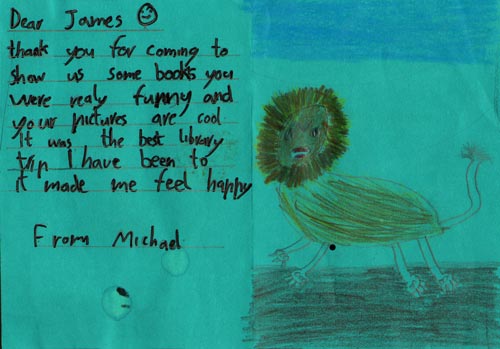 Dear James
thank you for coming to
show us some books you
were realy funny and
your pictures are cool
it was the best library
trip I have been to
it made me feel happy
From Michael